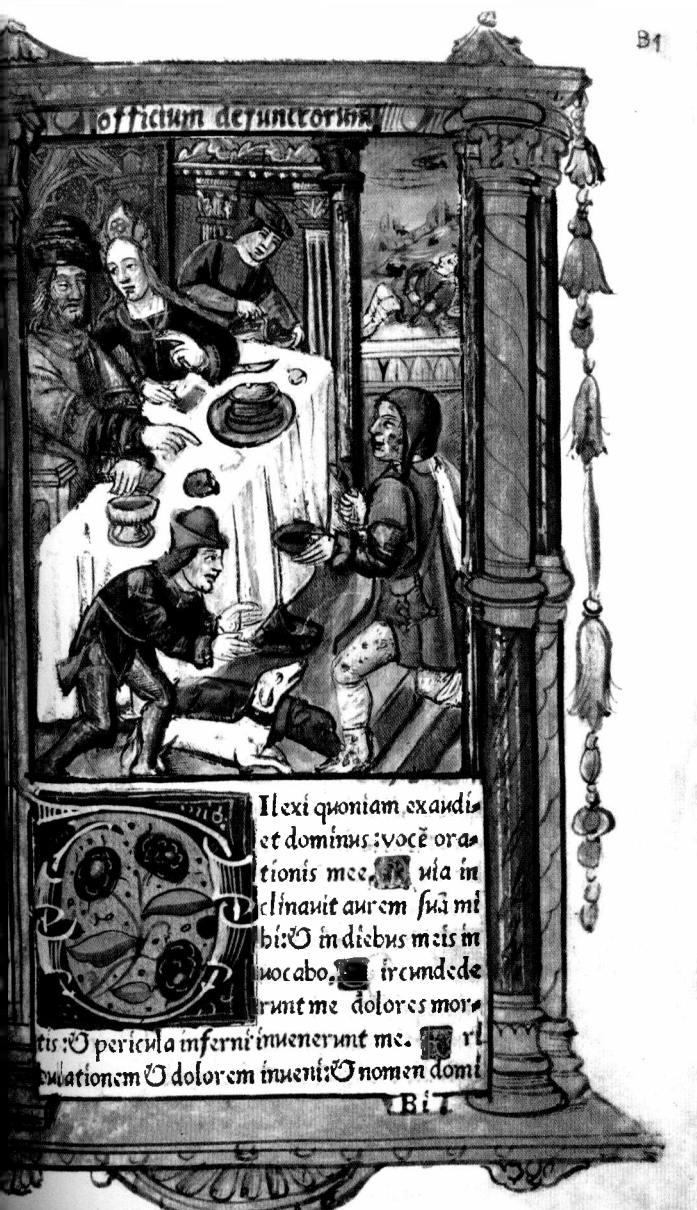 B1
officium defunctorum
Ilexi quoniam exaudi-
et dominus: vocē ora-
tionis mee. uia in
clinauit aurem suā mi
hi: & in diebus meis in
uocabo. ircundede
runt me dolores mor-
tis: & pericula inferni inuenerunt me. ri
bulationem & dolorem inueni: & nomen domi
B i